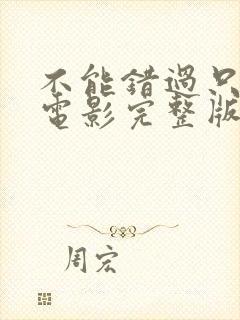 不能錯過只
電影完整版
周宏